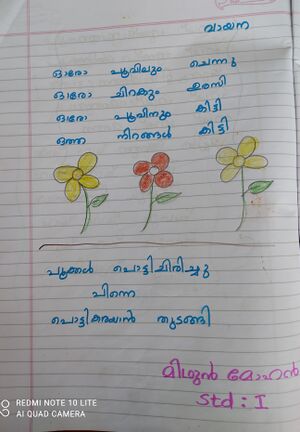 വായന
ഓരോ പൂവിലും ചെന്നു
ഓരോ ചിറകും ഉരസി
ഓരോ പൂവിനും കിട്ടി
ഒത്ത നിറങ്ങൾ കിട്ടി
പൂക്കൾ പൊട്ടിച്ചിരിച്ചു
പിന്നെ
പൊട്ടികരയാൻ തുടങ്ങി
മിഥുൻ മോഹൻ
Std : I
REDMI NOTE 10 LITE
AI QUAD CAMERA